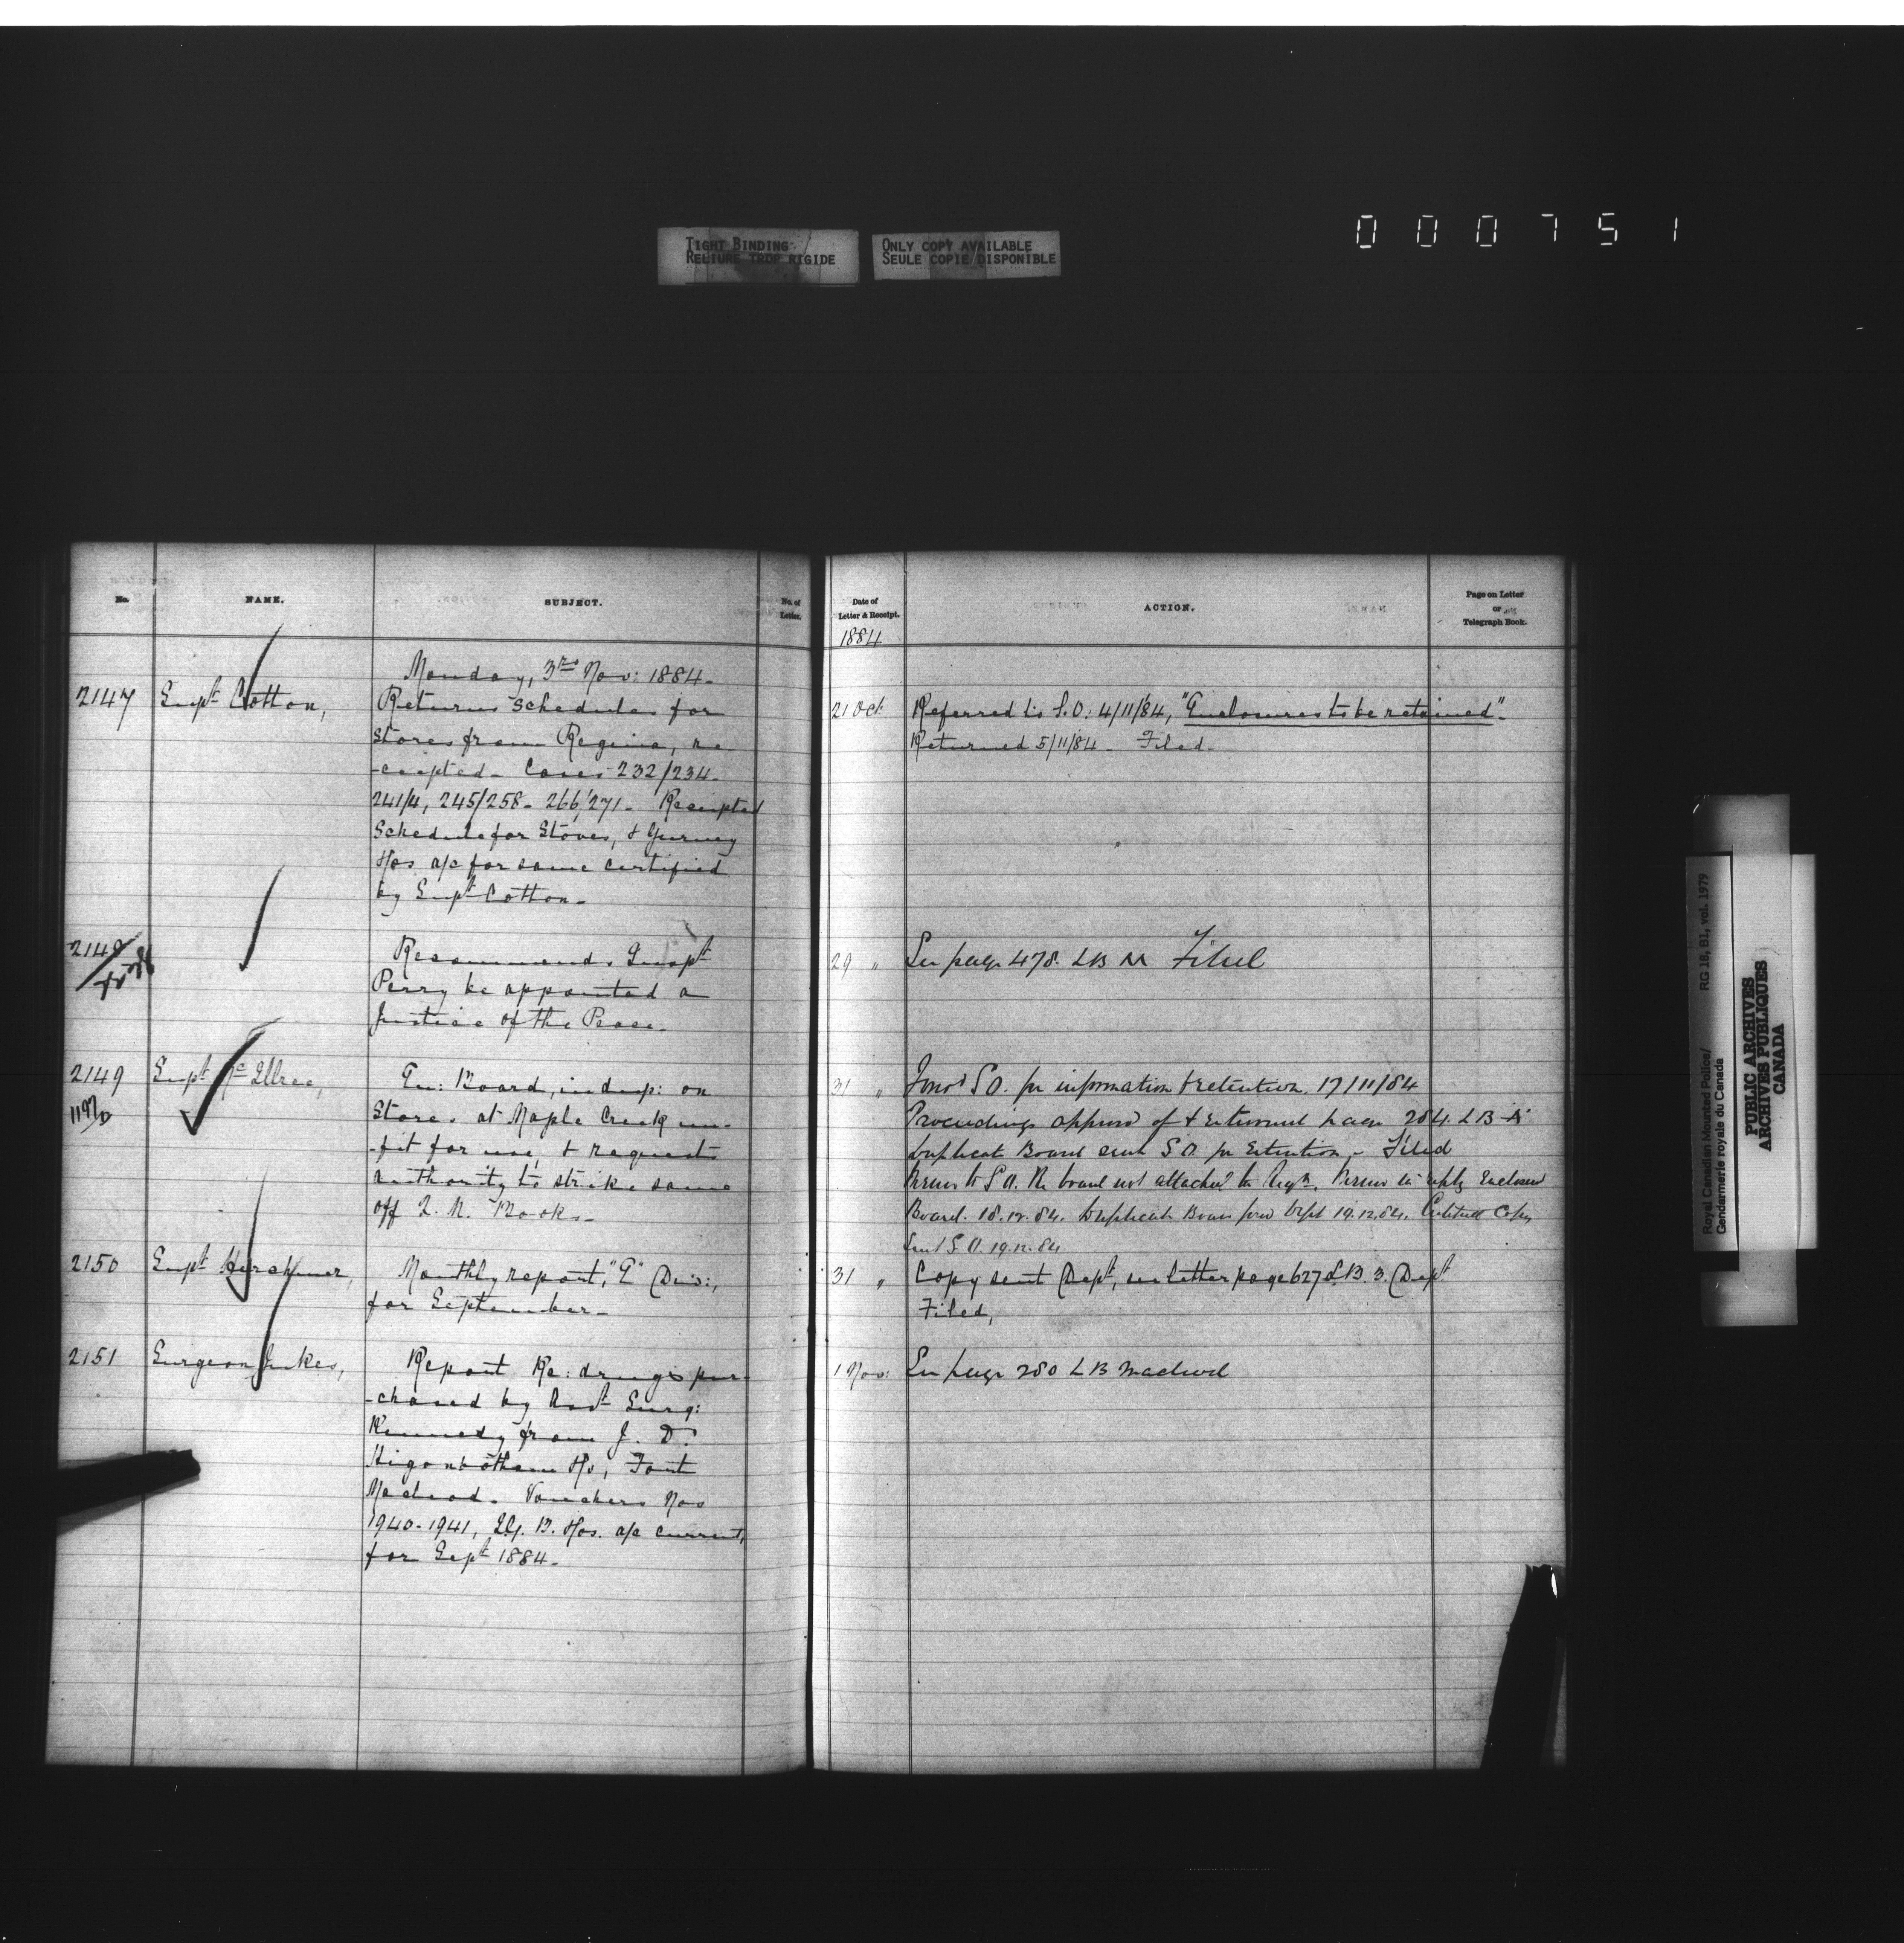 TIGHT BINDING
RELIURE TROP RIGIDE
ONLY COPY AVAILABLE
SEULE COPIE DISPONIBLE
000751
No.
NAME.
SUBJECT.
No. of
Letter.
Monday, 3rd Nov: 1884.
2147
Supt Cotton,
Returns schedules for
stores from Regina, re
-ceipted. Cases 232/234.
241/4, 245/258. 266/271. Receipted
Schedule for Stoves, & Gurney
a/c for same certified
by Supt Cotton.
2148
Recommends Inspt
Perry be appointed a
Justice of the Peace.
2149
Supt McIllree,
Board, in dup: on
Stores at Maple Creek un-
-fit for use, & requests
authority to strike same
off Q. M. Books.
2150
Supt Herchmer,
Monthly report, "E" Divis:,
for September.
2151
Surgeon Jukes,
Report Re: drugs pur-
-chased by Asst Surg:
Kennedy from J. D.
Higonbotham Fort
Macleod. Vouchers Nos
1940-1941, I.G. B. a/c current,
for Sept 1884.
Date of
Letter & Receipt.
ACTION.
Page on Letter
or
Telegraph Book.
1884
21 Oct.
Referred to S.O. 4/11/84, "Enclosures to be retained".
Returned 5/11/84. Filed.
29 "
See page 478. LB Filed
31 "
S.O. for information & retention. 17/11/84
Proceedings approved of & page 284. LB
Duplicate Board sent S.O. for retention. Filed
to S.O. Re board not attached to in reply Enclosed
Board. 18.12.84. Duplicate Board Dept 19.12.84. Copy
Sent S.O. 19.12.84
31 "
Copy sent Dept, see letter page 627 L.B. 3. Dept
Filed,
1 Nov:
See page 280 LB Macleod
Royal Canadian Mounted Police/
Gendarmerie royale du Canada
RG 18, B1, vol. 1979
PUBLIC ARCHIVES
ARCHIVES PUBLIQUES
CANADA